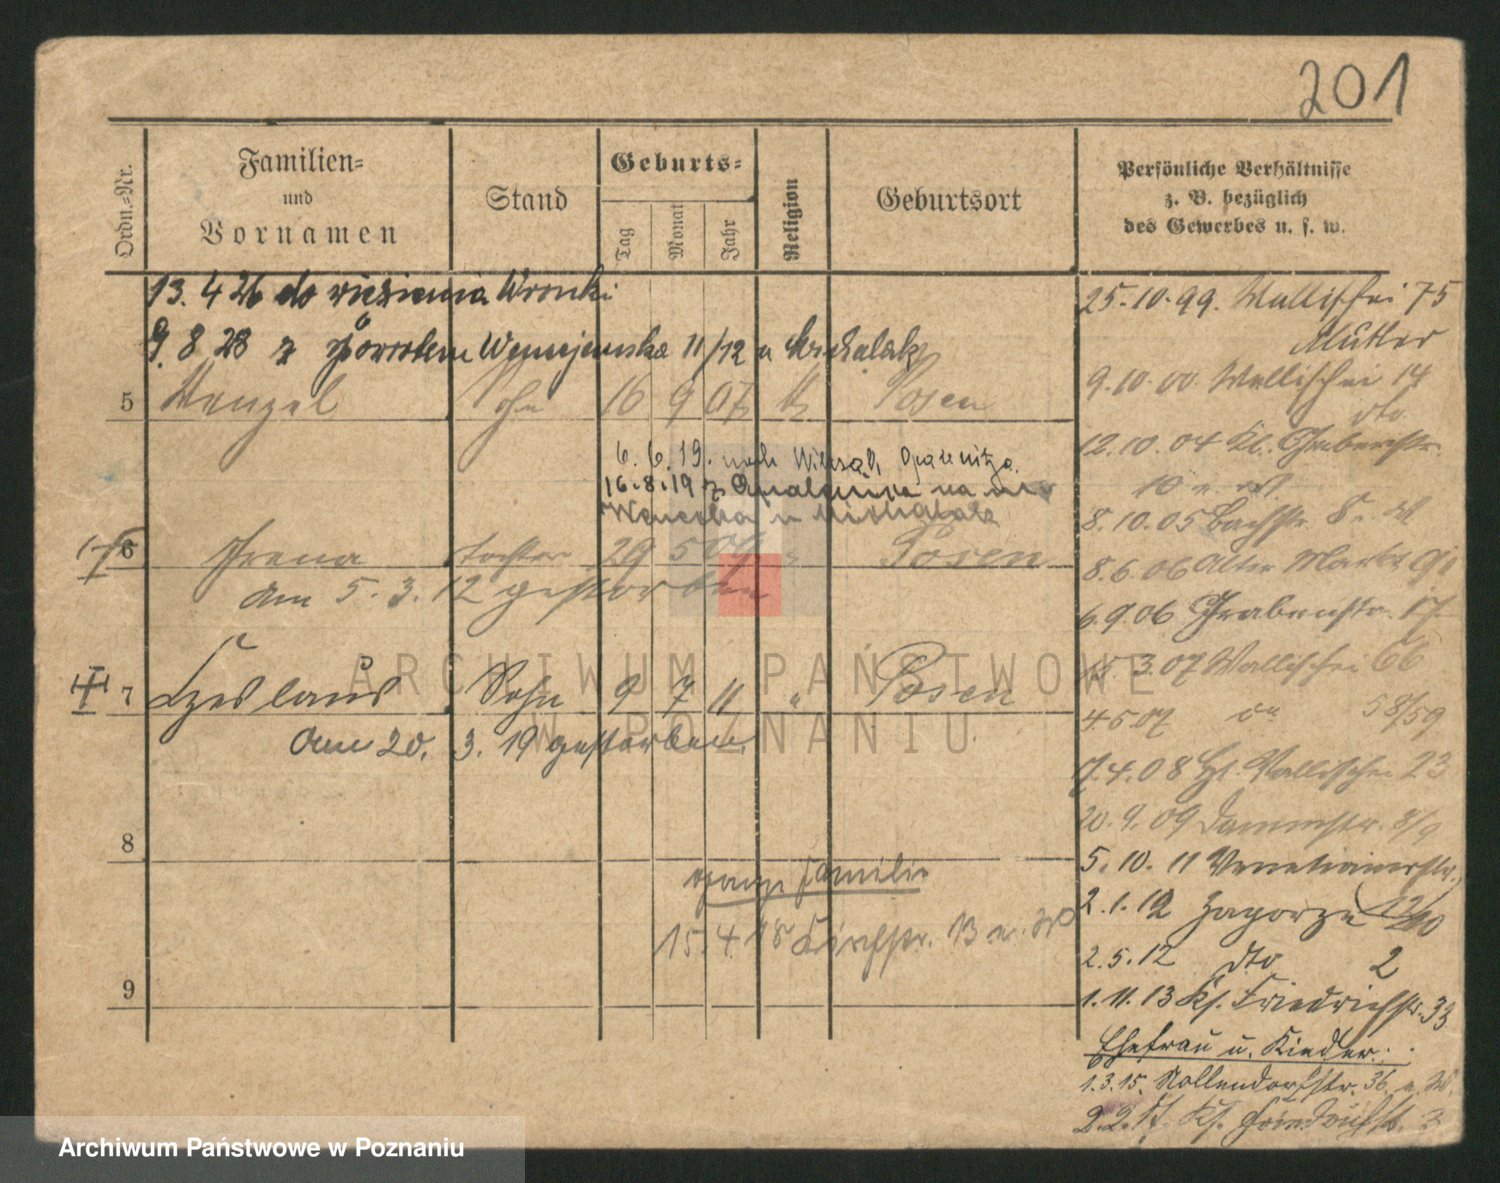 201
Ordn.-Nr.
Familien-
und
Vornamen
Stand
Geburts-
Tag
Monat
Jahr
Religion
Geburtsort
Persönliche Verhältnisse
z. B. bezüglich
des Gewerbes u. s. w.
13. 4 26 do więzienia Wronki
9. 8 28 z powrotem 11/12 u Michalak
5 Wenzel Sohn 16 9 07 k Posen
6. 6. 19. nach Opalenitza
16. 8. 19 z
6 Irena Tochter 29 5 09 " Posen
am 5. 3. 12 gestorben
7 Czeslaus Sohn 9 7 11 " Posen
am 20. 3. 19 gestorben
8
ganze Familie
15. 4. 18 Kirchstr. 13 b.
9
25. 10. 99. Wallischei 75
Mutter
9. 10. 00. Wallischei 14
dto
12. 10. 04 Kl. Gerberstr.
10
8. 10. 05 Bachstr. 8.
8. 6. 06 Alter Markt
6. 9. 06 Grabenstr. 17
15. 3. 07 Wallischei 66
4 5 07 58/59
7. 4. 08 Wallischei 23
20. 9. 09 Dammstr. 8/9
5. 10. 11 Venetianerstr.
2. 1. 12 Zagorze
2. 5. 12 dto 2
1. 11. 13 Ks. Friedrichstr. 33
Ehefrau u. Kinder:
1. 3. 15. Nollendorfstr. 36
2. 2. 17. Ks. Friedrichstr.
ARCHIWUM PAŃSTWOWE
W POZNANIU
Archiwum Państwowe w Poznaniu